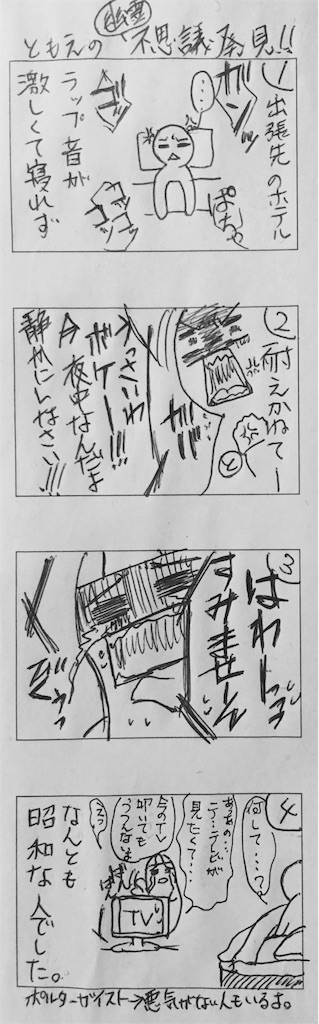 ともえの幽霊不思議発見!!
①出張先のホテル
ラップ音が
激しくて寝れず
…
ガンッ
ゴッ
ゴッゴッ
ぱちゃ
②耐えかねてー
うっさいわ
ボケー!!!
今夜中なんだよ
静かにしなさい!!!
ガバ
と
③
はわーっ
すみませーん
④
何して…?
ああの…
テ…テレビが
見たくて…
今のTV
叩いても
うつんないよ
えっ
ばん
ばん
TV
なんとも
昭和な人でした。
ポルターガイスト→悪気がない人もいるよ。